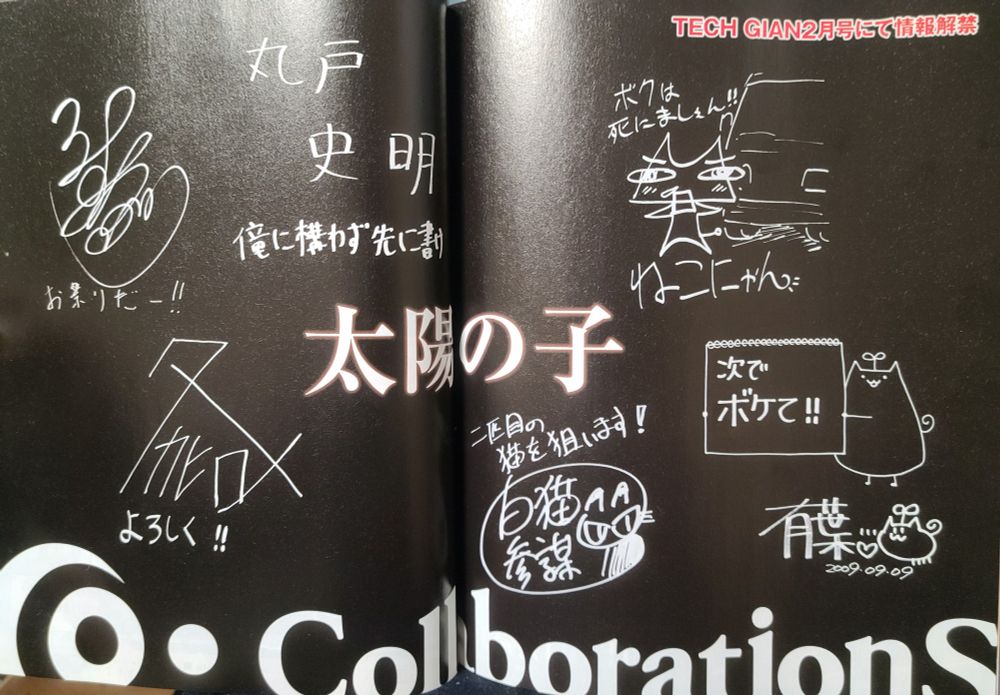 TECH GIAN2月号にて情報解禁
丸戸
史明
俺に構わず先に書け
お祭りだー!!
ボクは
死にましぇん!!
ねこにゃん
太陽の子
よろしく!!
二匹目の
猫を狙います!
白猫
参謀
次で
ボケて!!
有葉
2009.09.09
CollaborationS